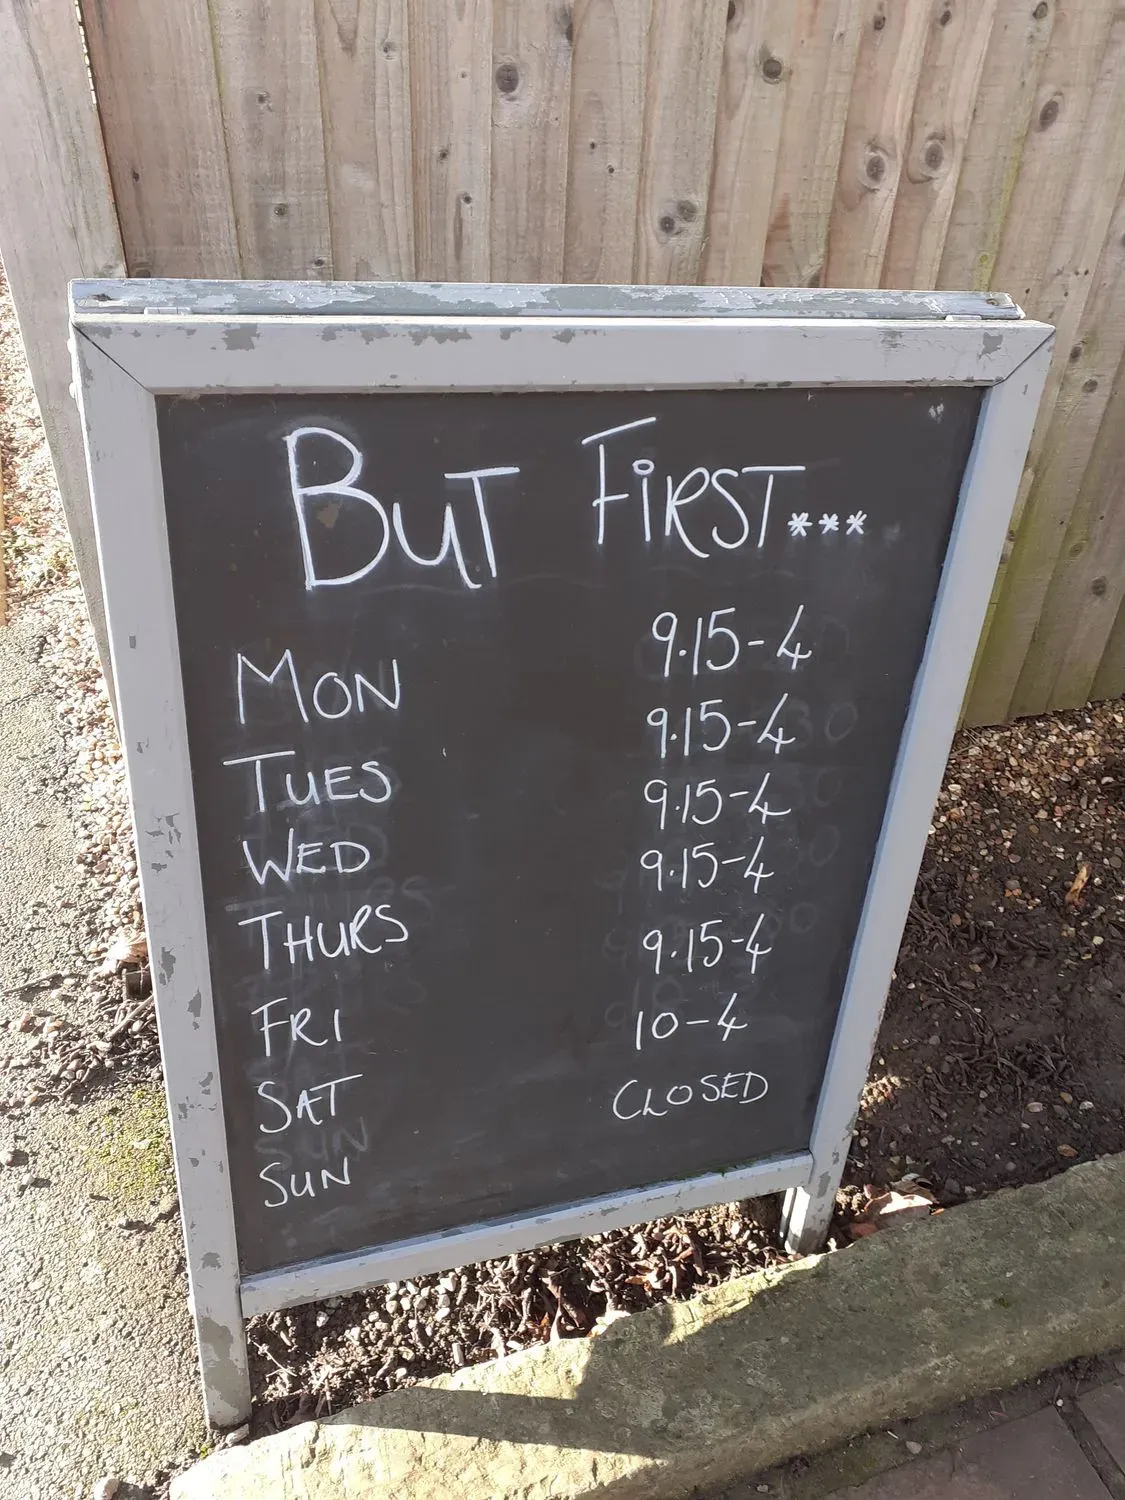 But First***
Mon 9.15-4
Tues 9.15-4
Wed 9.15-4
Thurs 9.15-4
Fri 9.15-4
Sat 10-4
Sun Closed